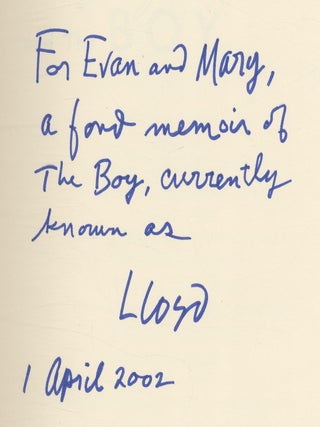 For Evan and Mary,
a fond memoir of
The Boy, currently
known as
Lloyd
1 April 2002